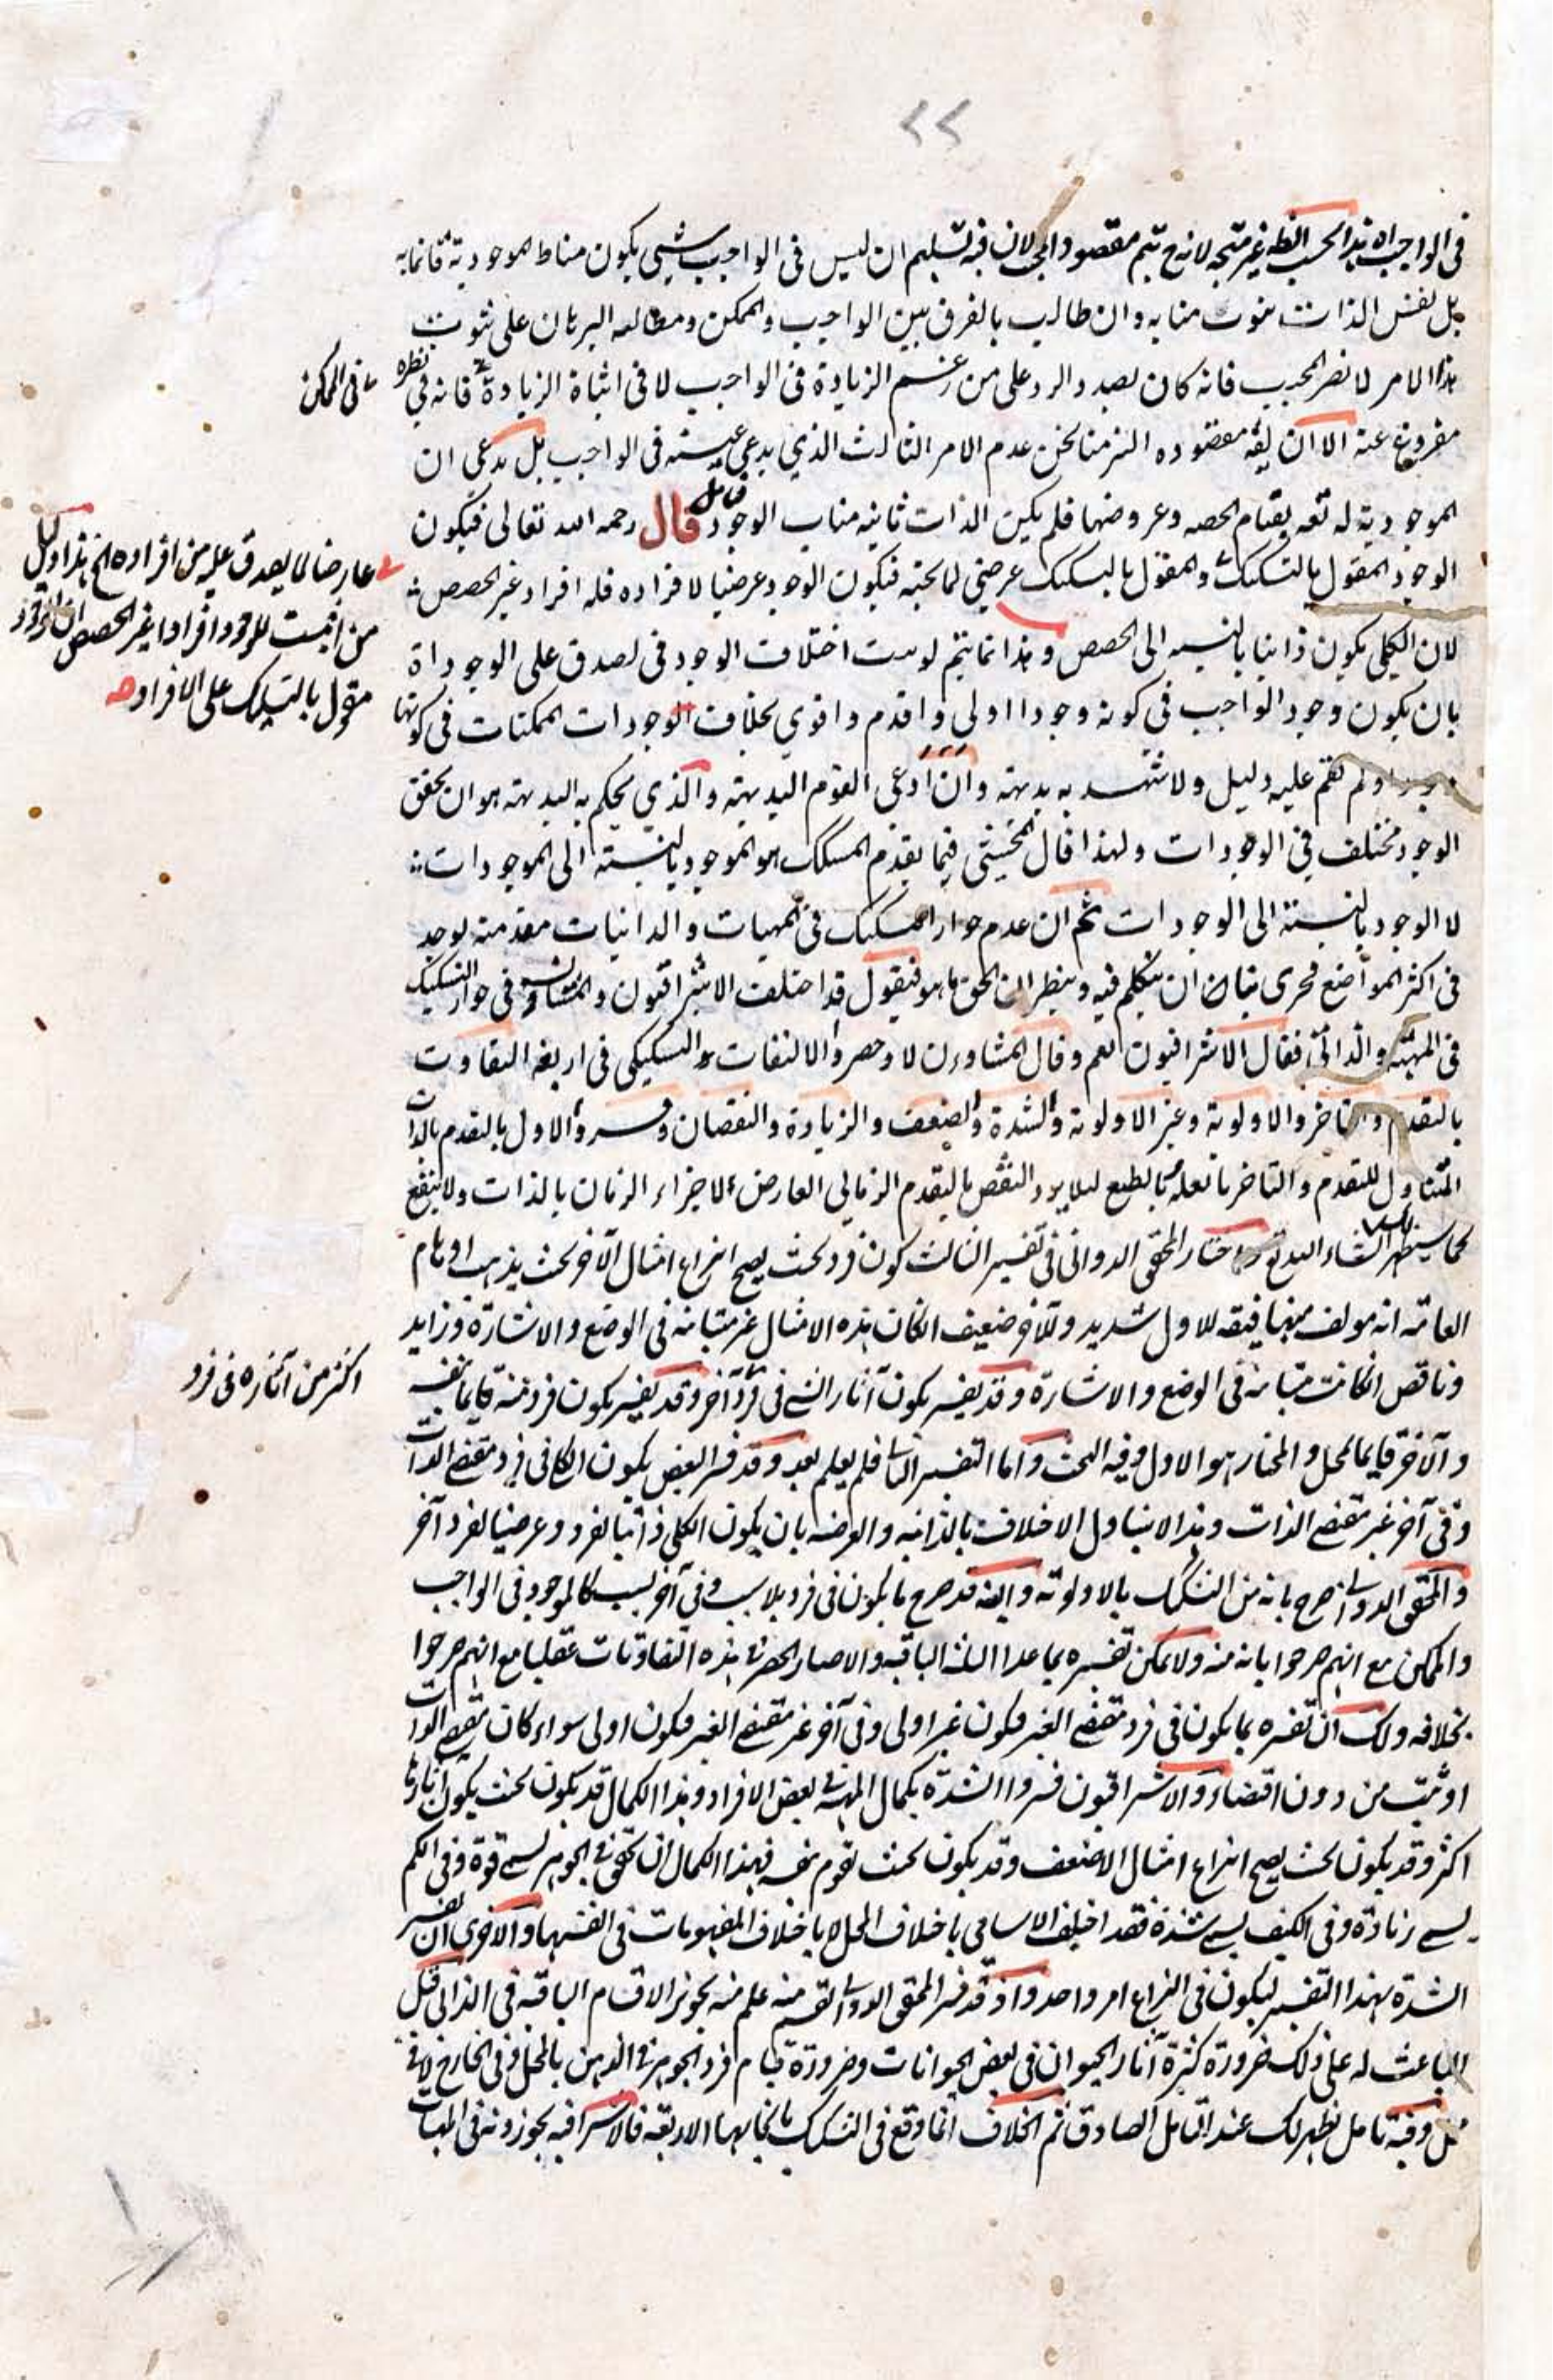 ٢٢
في الواجب اه هذا بحسب الظ غير متجه لانه ح يتم مقصود المجيب لان فيه تسليم ان ليس في الواجب شيئ يكون مناط الموجودية قائما به
بل نفس الذات ينوب منابه وان طالب بالفرق بين الواجب والممكن ومطالعه البرهان على ثبوت
هذا الامر لا يضر المجيب فانه كان بصدد الرد على من زعم الزيادة في الواجب لا في اثباة الزيادة فانه في نظره
في الممكن
مفروغ عنه الا ان يقه مقصوده عدم الامر الثالث الذي يدعي عينيته في الواجب بل يدعى ان
الموجودية له تعه بقيام الحصه وعروضها فلم يكن الذات نائبه مناب الوجود تأمل قال رحمه الله تعالى فيكون
الوجود المقول بالتشكيك والمقول بالتشكيك عرضي لما تحته فيكون الوجود عرضيا لافراده فله افراد غير الحصص
عارضا لما يصدق عليه من افراده الخ هذا دليل
من اثبت للوجود افرادا غير الحصص
مقول بالتشكيك على الافراد صه
لان الكلي يكون ذاتيا بالنسبه الى الحصص وهذا انما يتم لو ثبت اختلاف الوجود في لصدق على الوجوداة
بان يكون وجود الواجب في كونه وجودا اولى واقدم واقوى بخلاف الوجودات الممكنات في كونها
ولم يقم عليه دليل ولا تشهد به بديهته وان ادعى القوم البديهته والذي يحكم به البديهته هو ان تحقق
الوجود مختلف في الوجودات ولهذا قال المحشي فيما تقدم المشكك هو الموجود بالنسبته الى الموجودات
لا الوجود بالنسبته الى الوجودات ثم ان عدم جواز التشكيك في المهيات والذاتيات مقدمته يوجد
في اكثر المواضع فحرى بنا ان نتكلم فيه وينظر ان الحق ما هو فنقول قد اختلف الاشراقيون والمشاؤن في جواز التشكيك
في المهيته والذاتي فقال الاشراقيون نعم وقال المشاؤن لا وحصروا التفاوت التشكيكي في اربعه التفاوت
بالتقدم والتاخر والاولوية وغير الاولوية والشدة والضعف والزيادة والنقصان وفسروا الاول بالتقدم بالذات
المتناول للتقدم والتاخر بالعليه بالطبع ليلا يرد النقض بالتقدم الزماني العارض لاجزاء الزمان بالذات ولا ينفع
كما سيظهر انشاء الله تع واختار المحقق الدواني في تفسير الثالث كون فرد بحيث يصح انتزاع امثال الآخر بحيث يذهب اوهام
العامه انه مولف منها فيقه للاول شديد وللآخر ضعيف انكان هذه الامثال غير متباينه في الوضع والاشارة وزايد
وناقص انكانت متباينه في الوضع والاشارة وقد يفسر بكون آثار الشئ في فرد آخر وقد يفسر بكون فرد منه قايما بنفسه
اكثر من آثاره في فرد
والآخر قايما بالمحل والمختار هو الاول وفيه البحث واما التفسير الثاني فلم يعلم بعد وقد فسر البعض بكون الكلي في فرد مقتضى الذات
وفي آخر غير مقتضى الذات وهذا لا يتناول الاختلاف بالذاتيه والعرضه بان يكون الكلي ذاتيا لفرد وعرضيا لفرد آخر
والمحقق الدواني صرح بانه من التشكيك بالاولوته وايضه قد صرح بما يكون في فرد بلا سبب وفي آخر بسبب كالموجود في الواجب
والممكن مع انهم صرحوا بانه منه ولا يمكن تفسيره بما عدا الثلثه الباقيه والا صار الحصر في هذه التفاوتات عقليا مع انهم صرحوا
بخلافه ولك ان تفسره بما يكون في فرد مقتضى الغير فيكون غير اولى وفي آخر غير مقتضى الغير فيكون اولى سواء كان مقتضى الذات
او ثبت من دون اقتضاء والاشراقيون فسروا الشدة بكمال المهيته في بعض الافراد وهذا الكمال قد يكون بحيث يكون آثارها
اكثر وقد يكون بحيث يصح انتزاع امثال الاضعف وقد يكون بحيث تقوم بنفسه فهذا الكمال ان تحقق في الجوهر يسمى قوة وفي الكم
يسمى زيادة وفي الكيف يسمى شدة فقد اختلف الاسامي باختلاف المحل لا باختلاف المفهومات في انفسها والاحرى ان يفسر
الشدة بهذا التفسير ليكون في النزاع امر واحد واذ قد فسر المحقق الدواني علم منه تجويز الاقسام الباقيه في الذاتي قيل
الباعث له على ذلك ضرورة كثرة آثار الحيوان في بعض الحيوانات وضرورة قيام فرد الجوهر في الذهن بالمحل وفي الخارج لا في
محل وفيه تامل يظهر لك عند التامل الصادق ثم الخلاف انما وقع في التشكيك بانحائها الاربعه فالاشراقيه يجوزونه في المهيات